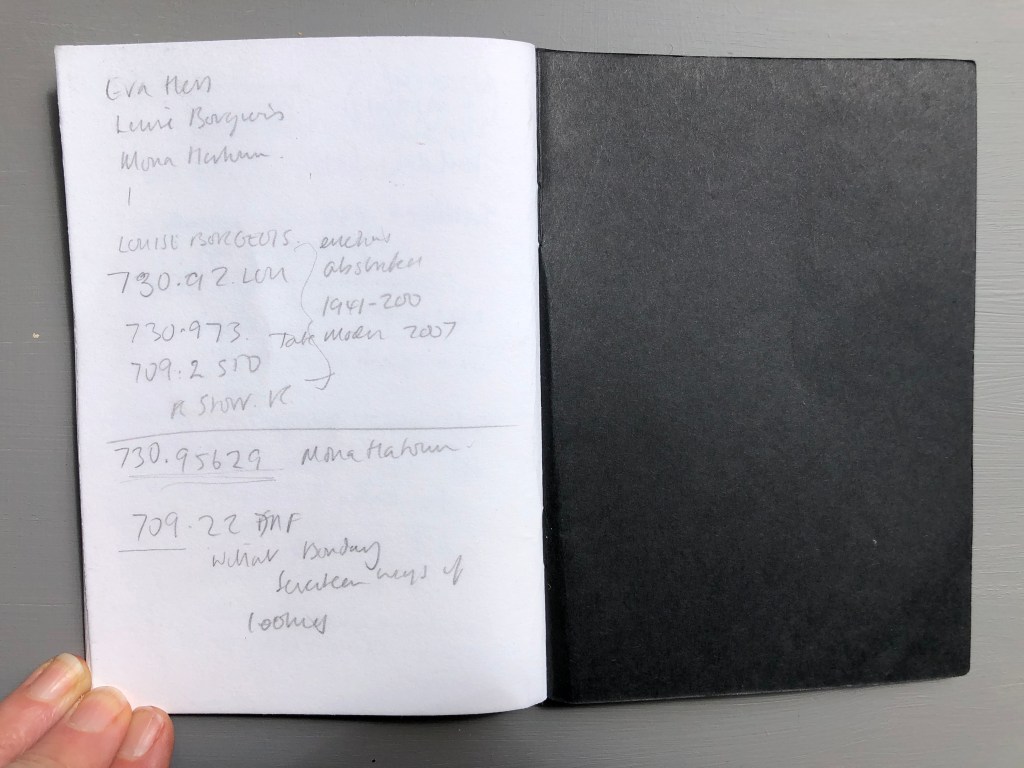 Eva Hess
Louise Borgeois
Mona Hatoum.
LOUISE BORGEOIS
730.92 LOU
1941-200
730.973. Tate Modern 2007
709.2 STO
R Storr.
730.95629 Mona Hatoum
709.22
Without Boundary
Seventeen ways of
looking